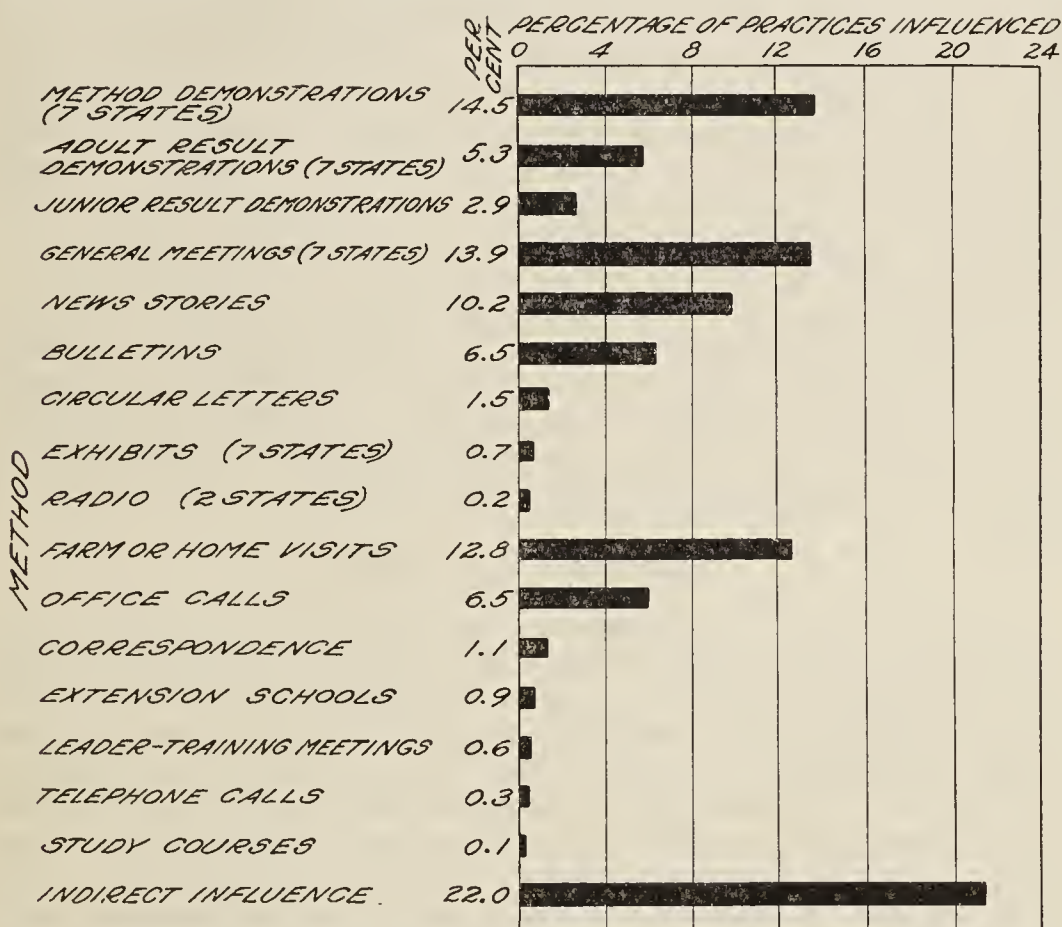 PERCENTAGE OF PRACTICES INFLUENCED
PER CENT
0 4 8 12 16 20 24
METHOD
METHOD DEMONSTRATIONS
(7 STATES) 14.5
ADULT RESULT
DEMONSTRATIONS (7 STATES) 5.3
JUNIOR RESULT DEMONSTRATIONS 2.9
GENERAL MEETINGS (7 STATES) 13.9
NEWS STORIES 10.2
BULLETINS 6.5
CIRCULAR LETTERS 1.5
EXHIBITS (7 STATES) 0.7
RADIO (2 STATES) 0.2
FARM OR HOME VISITS 12.8
OFFICE CALLS 6.5
CORRESPONDENCE 1.1
EXTENSION SCHOOLS 0.9
LEADER-TRAINING MEETINGS 0.6
TELEPHONE CALLS 0.3
STUDY COURSES 0.1
INDIRECT INFLUENCE. 22.0